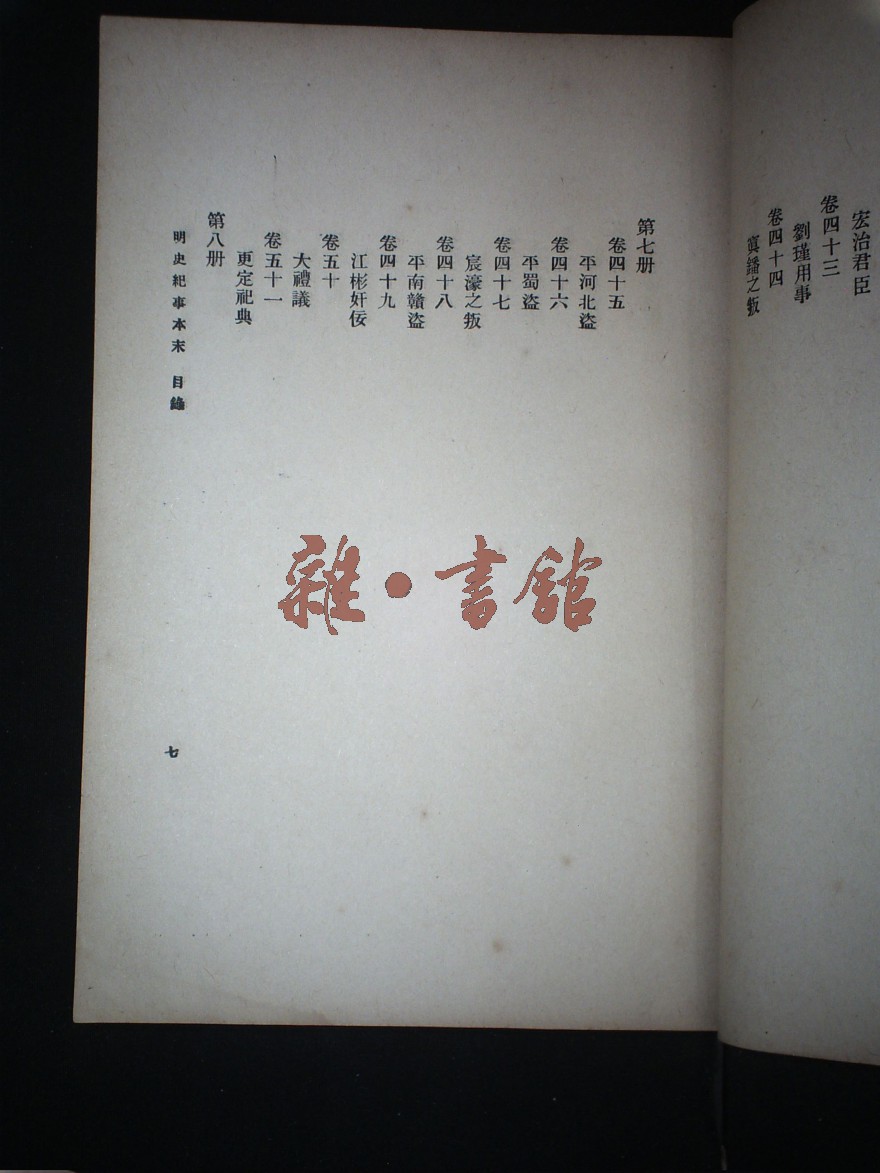 宏治君臣
卷四十三
劉瑾用事
卷四十四
寘鐇之叛
第七册
卷四十五
平河北盜
卷四十六
平蜀盜
卷四十七
宸濠之叛
卷四十八
平南贛盜
卷四十九
江彬奸佞
卷五十
大禮議
卷五十一
更定祀典
第八册
明史紀事本末 目錄
七
雜·書館